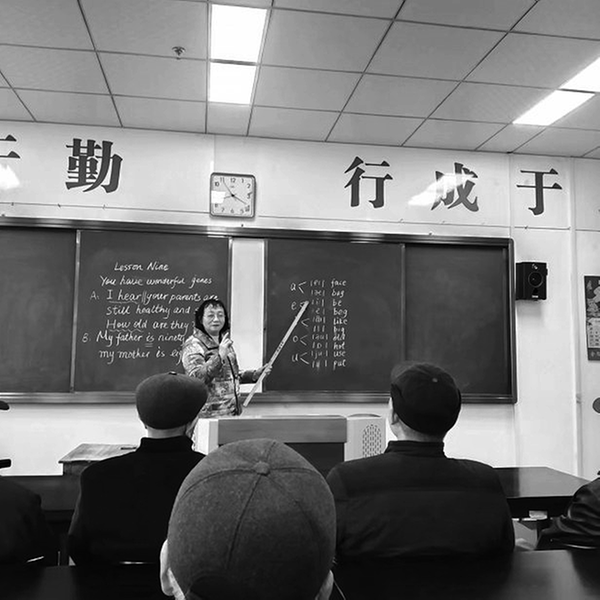 勤 行 成 于
Lesson Nine
You have wonderful genes
A: I hear your parents
still healthy and
How old are they
B: My father is
my mother is
a face
bag
e be
beg
like
big
o old
hot
u use
put